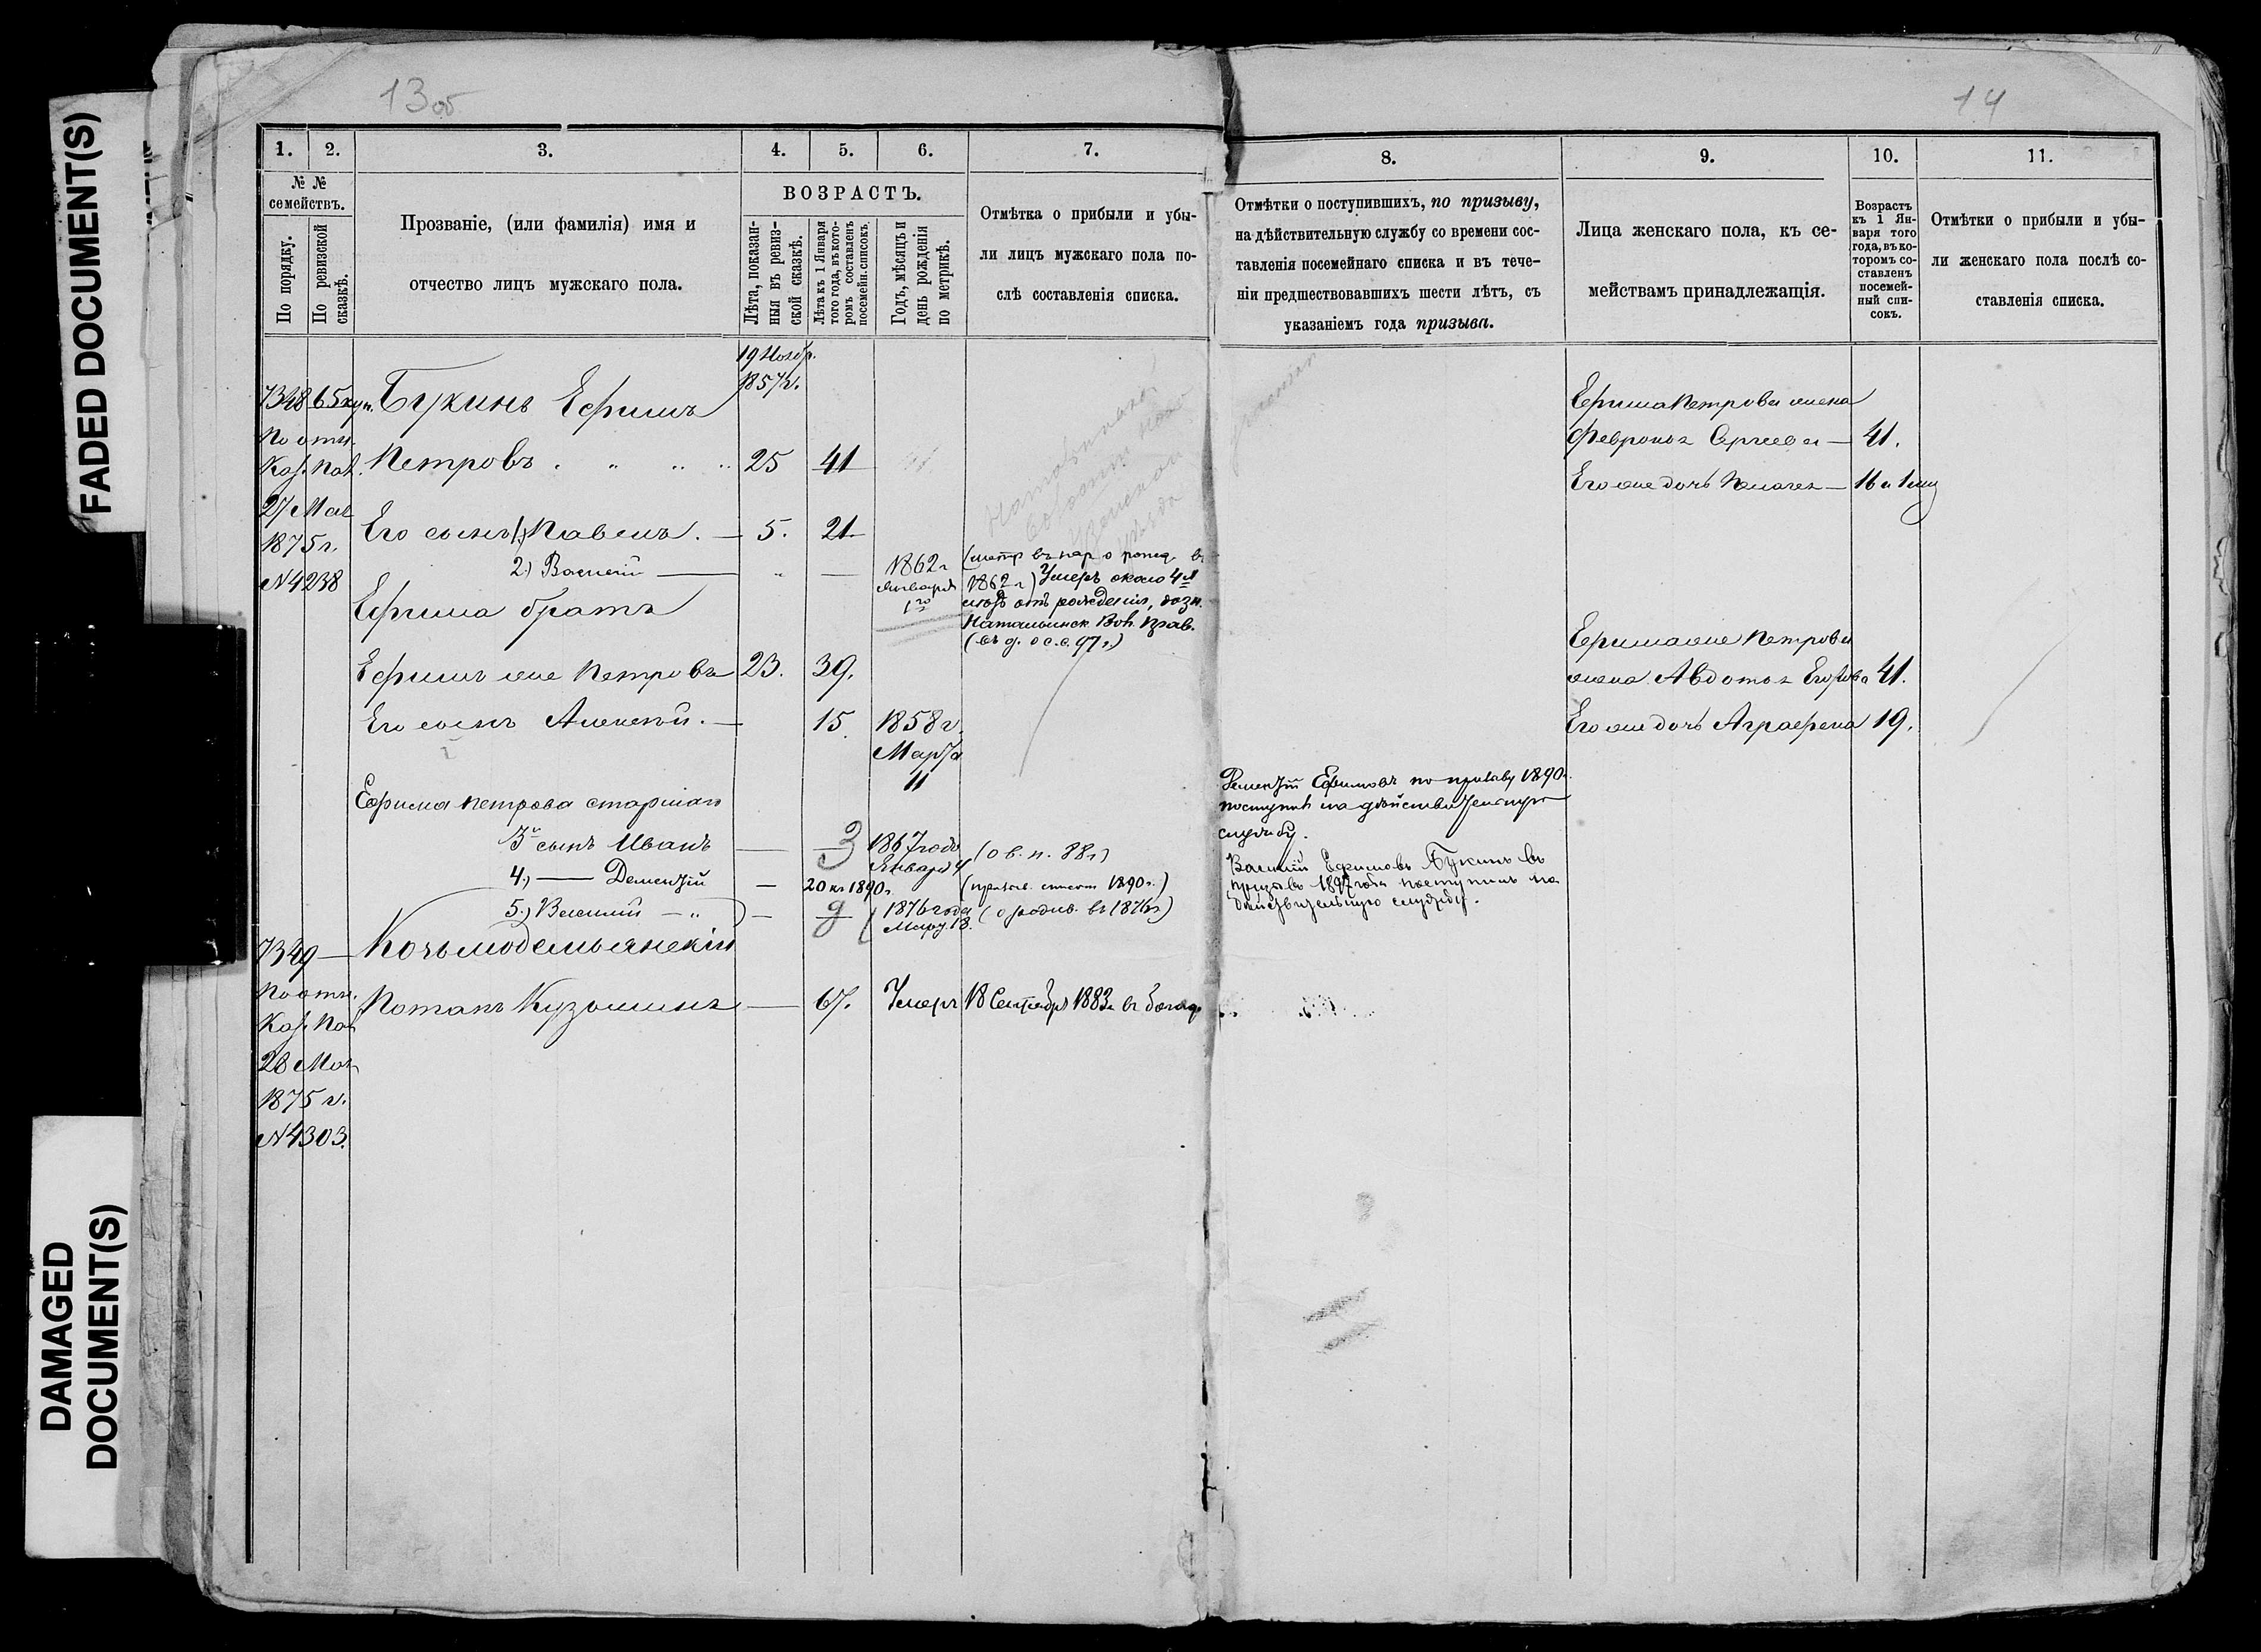 FADED DOCUMENT(S)
DAMAGED
DOCUMENT(S)
13 об
1.
2.
3.
4.
5.
6.
7.
№ №
семействъ.
По порядку.
По ревизской
сказкѣ.
Прозваніе, (или фамилія) имя и
отчество лицъ мужскаго пола.
ВОЗРАСТЪ.
Лѣта, показан-
ныя въ ревиз-
ской сказкѣ.
Лѣта къ 1 Января
того года, въ кото-
ромъ составленъ
посемейн. списокъ.
Годъ, мѣсяцъ и
день рожденія
по метрикѣ.
Отмѣтка о прибыли и убы-
ли лицъ мужскаго пола по-
слѣ составленія списка.
19 Ноябр.
1857 г.
7348
65 куп.
Букинъ Ефимъ
По отн.
Каз. Пал.
Петровъ . " " "
25
41
27 Мая
1875 г.
Его сынъ 1) Павелъ . —
5.
21.
N 4238
2.) Василій —
1862 г
Января
1го
(метр въ пар о рожд. въ
1862 г) Умеръ около 4 л
отъ рожденія, дозн.
Натальинск. Вол. Прав.
(въ д. о с. с. 97 г.)
Ефима братъ
Ефимъ же Петровъ
23.
39.
Его сынъ Алексѣй . —
15.
1858 г.
Марта
11
Ефима Петрова старшаго
3й сынъ Иванъ
3
1867 года
Января 4
(о в. п. 88 г)
4.) — Дементій
20 къ 1890 г.
(призыв. список 1890 г.)
5.) Василій — "
9
1876 года
Март. 18.
(о родив. въ 1876 г)
7349
Козьмодемьянскій
По отн.
Каз. Пал
Потапъ Кузьминъ —
67.
Умеръ 18 Сентября 1883 г. въ
28 Мая
1875 г.
N 4303.
14
8.
9.
10.
11.
Отмѣтки о поступившихъ, по призыву,
на дѣйствительную службу со времени сос-
тавленія посемейнаго списка и въ тече-
ніи предшествовавшихъ шести лѣтъ, съ
указаніемъ года призыва.
Лица женскаго пола, къ се-
мействамъ принадлежащія.
Возрастъ
къ 1 Ян-
варя того
года, въ ко-
торомъ со-
ставленъ
посемей-
ный спи-
сокъ.
Отмѣтки о прибыли и убы-
ли женскаго пола послѣ со-
ставленія списка.
Ефима Петрова жена
Февронья Сергеева —
41.
Его же дочь Пелагея —
16 и 1 мц
Ефима же Петрова
жена Авдотья Егорова
41.
Его же дочь Аграфена
19.
Дементій Ефимовъ по призыву 1890 г.
поступилъ на дѣйствительную
службу.
Василій Ефимовъ Букинъ въ
призывъ 1897 года поступилъ на
дѣйствительную службу.